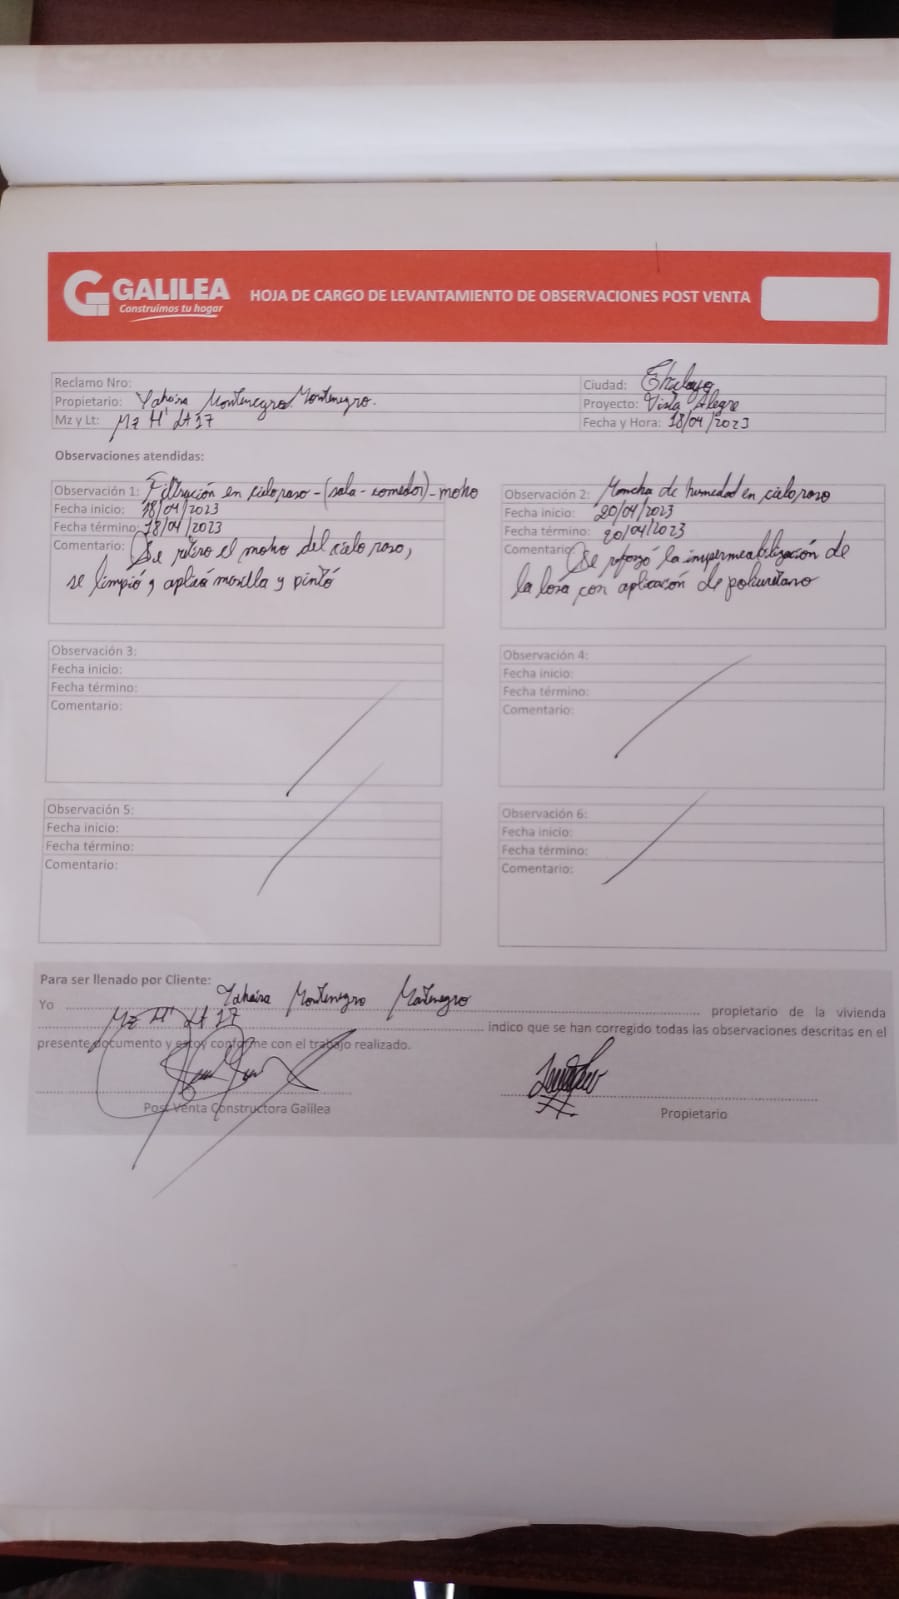 GALILEA
Construimos tu hogar
HOJA DE CARGO DE LEVANTAMIENTO DE OBSERVACIONES POST VENTA
Reclamo Nro:
Propietario: Yahaira Montenegro Montenegro.
Mz y Lt: Mz H' Lt 17
Ciudad: Chiclayo
Proyecto: Vista Alegre
Fecha y Hora: 18/04/2023
Observaciones atendidas:
Observación 1: Filtración en cielo raso - (sala - comedor) - moho
Fecha inicio: 18/04/2023
Fecha término: 18/04/2023
Comentario: Se retiro el moho del cielo raso,
se limpió y aplicó masilla y pintó
Observación 2: Mancha de humedad en cielo raso
Fecha inicio: 20/04/2023
Fecha término: 20/04/2023
Comentario: Se reforzó la impermeabilización de
la losa con aplicación de poliuretano
Observación 3:
Fecha inicio:
Fecha término:
Comentario:
Observación 4:
Fecha inicio:
Fecha término:
Comentario:
Observación 5:
Fecha inicio:
Fecha término:
Comentario:
Observación 6:
Fecha inicio:
Fecha término:
Comentario:
Para ser llenado por Cliente:
Yo Yahaira Montenegro Montenegro propietario de la vivienda
Mz H' Lt 17 indico que se han corregido todas las observaciones descritas en el
presente documento y estoy conforme con el trabajo realizado.
Post Venta Constructora Galilea
Propietario